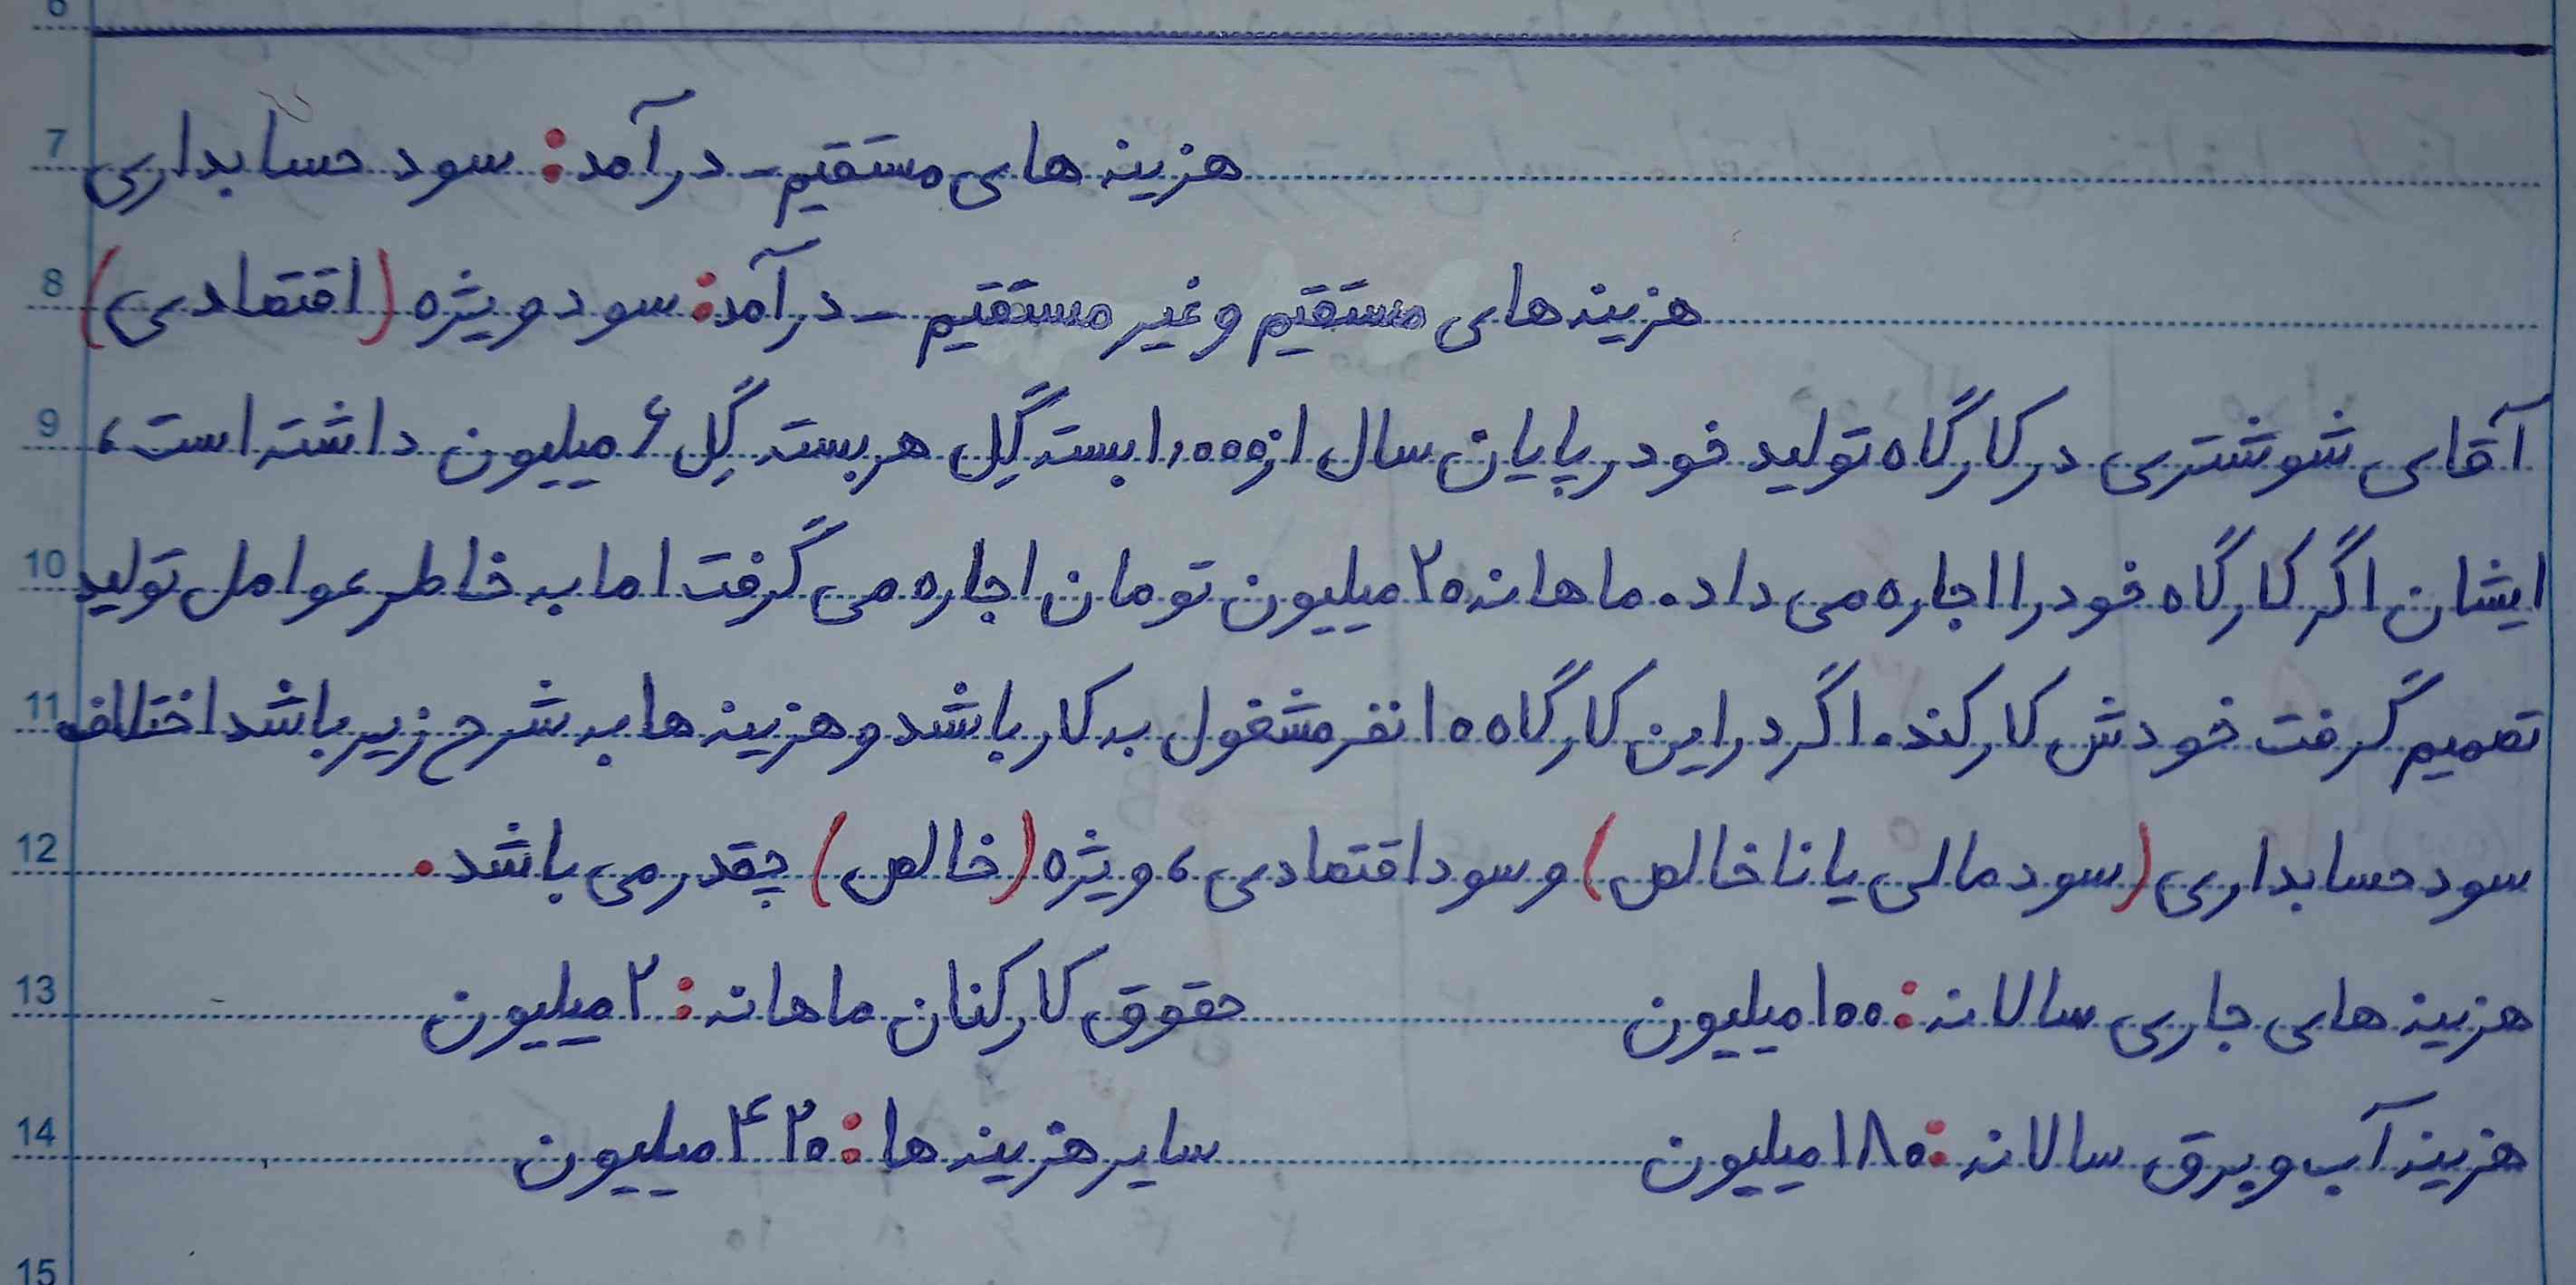 6
7 هزینه های مستقیم - درآمد: سود حسابداری
8 هزینه های مستقیم و غیر مستقیم - درآمد: سود ویژه (اقتصادی)
9 آقای شوشتری در کارگاه تولید خود در پایان سال از ۱,۰۰۰ بسته گِل هر بسته گِل ۶ میلیون داشته است،
10 ایشان اگر کارگاه خود را اجاره می داد. ماهانه ۲۰ میلیون تومان اجاره می گرفت اما به خاطر عوامل تولید
11 تصمیم گرفت خودش کار کند. اگر در این کارگاه ۱۰ نفر مشغول به کار باشد و هزینه ها به شرح زیر باشد اختلاف
12 سود حسابداری (سود مالی یا ناخالص) و سود اقتصادی، ویژه (خالص) چقدر می باشد.
13 هزینه های جاری سالانه: ۱۰۰ میلیون حقوق کارکنان ماهانه: ۲ میلیون
14 هزینه آب و برق سالانه: ۱۸۰ میلیون سایر هزینه ها: ۴۲۰ میلیون
15